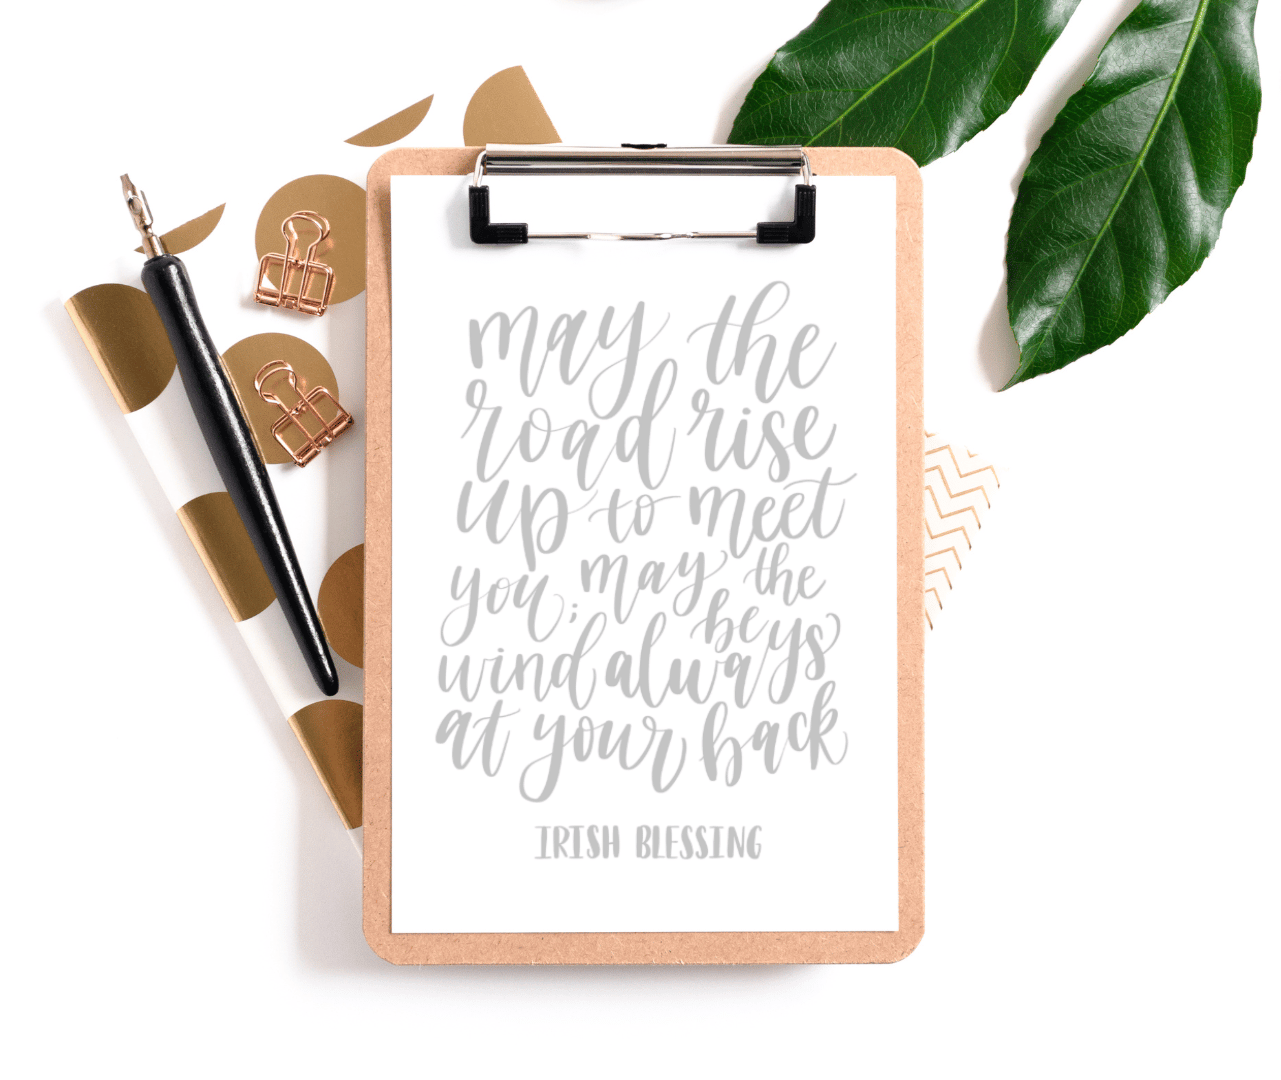 may the
road rise
up to meet
you; may the
wind always be
at your back
IRISH BLESSING